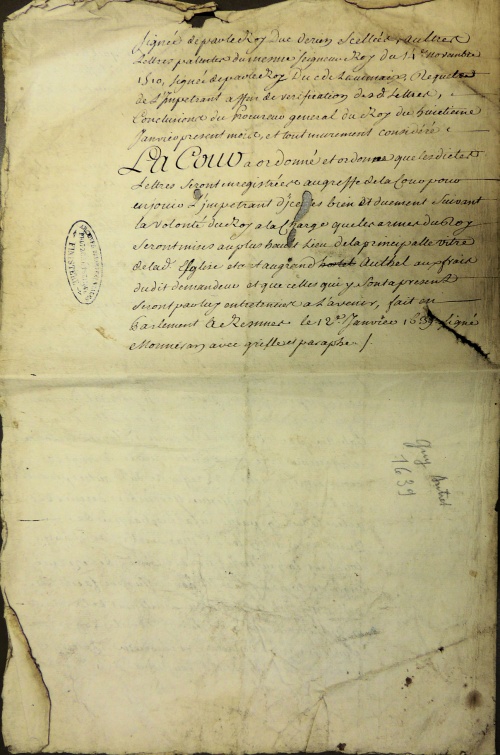 signée de par le Roy Duc de et scellées, aultres
Lettres patentes du mesme seigneur Roy du 14e novembre
signée de par le Roy Duc de Requeste
de L'impetrant affin de verification des d Lettres,
Conclusions du Procureur general du Roy du huictiesme
Janvier present mois, et tout murement consideré
LA Cour a ordonné et ordonne que lesdictes
Lettres seront enregistrées au greffe de la Cour pour
en jouir L'impetrant d'icelles bien et duement suivant
la volonté du Roy a la charge que les armes du Roy
seront mises au plus hault Lieu de la principalle vitre
de lad Eglise et au grand Authel aux frais
dudit demandeur et que celles qui y sont a present
seront par luy entretenues a L'avenir, fait en
Parlement A Rennes le 12e Janvier 1639 signé
Monneran avec grille et paraphe /.
FINISTERE
Guy Autret
1639